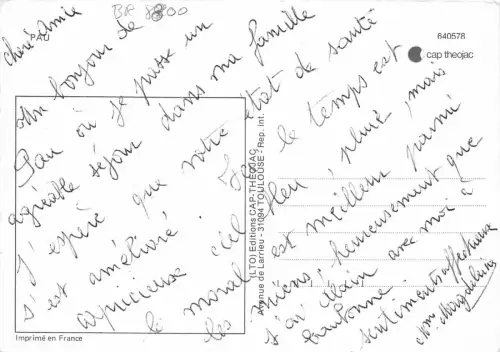 PAU
BR 8800
640578
cap theojac
chère amie
un bonjour de
Pau où je passe un
agréable séjour dans ma famille
J'espère que votre état de santé
s'est amélioré. le temps est
capricieuse ciel bleu, pluie, mais
le moral est meilleur parmi
les miens, heureusement que
s'an Alain avec moi à
sentiments affectueux
Mme Magdeleine
(LTO) Editions CAP-THEOJAC
Avenue de Larrieu - 31094 TOULOUSE - Rep. Int.
Imprimé en France